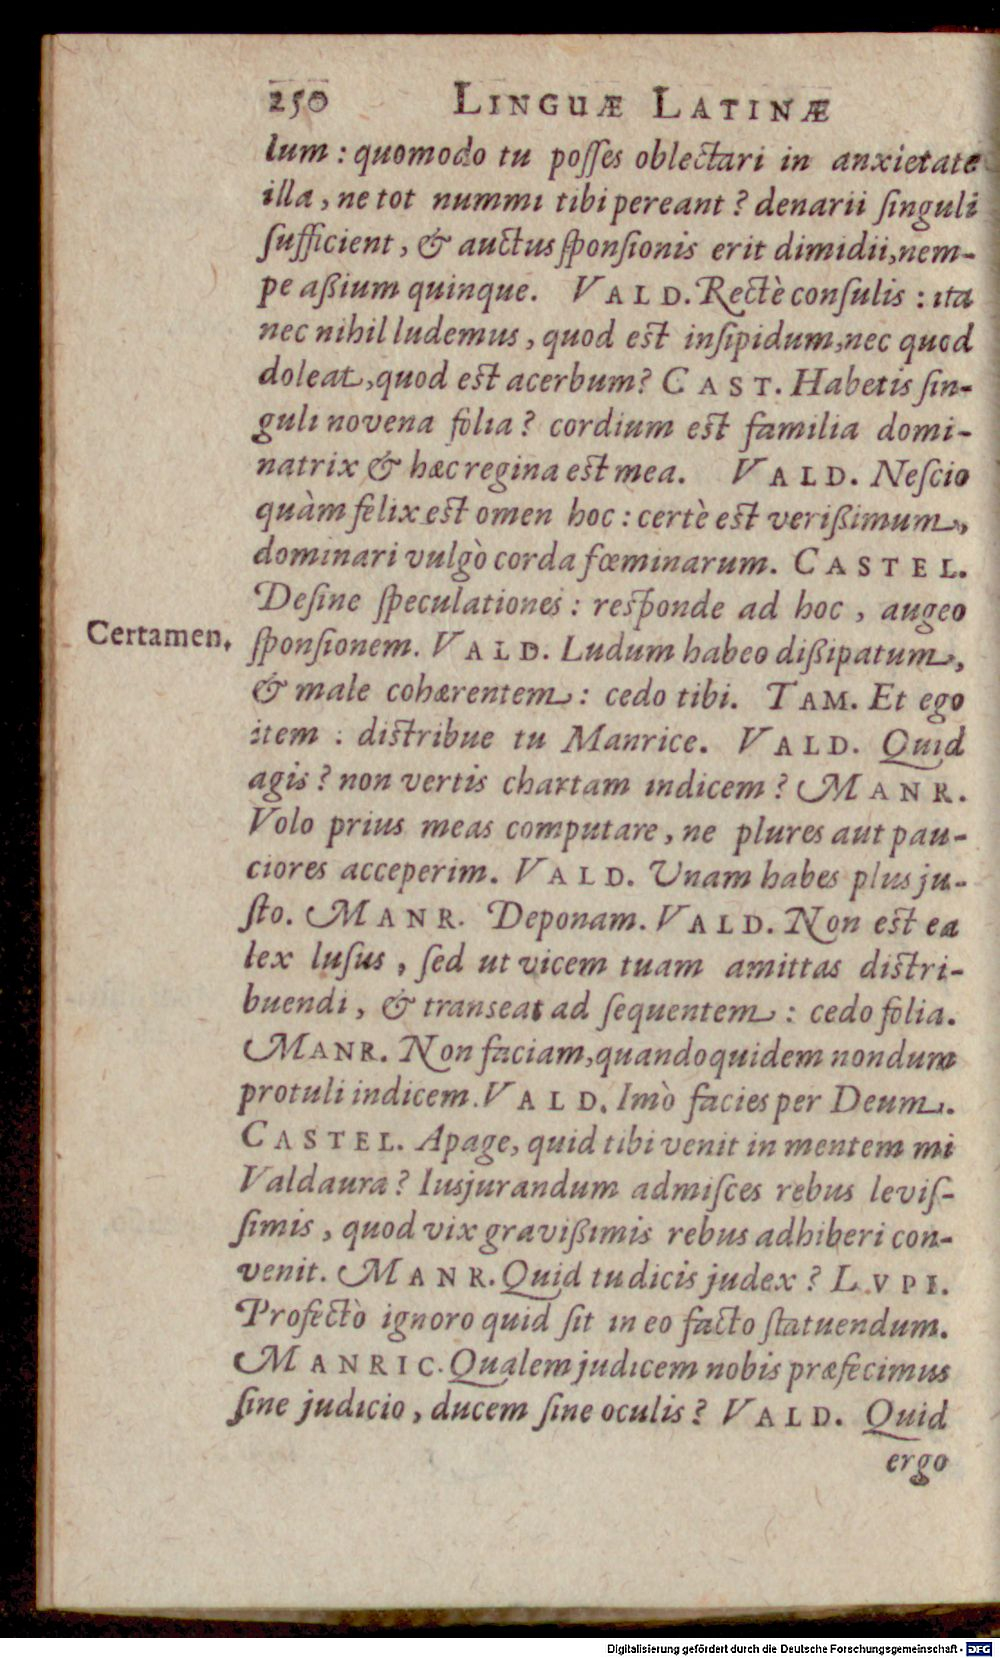 250 LINGUÆ LATINÆ
lum : quomodo tu poſſes oblectari in anxietate
illa, ne tot nummi tibi pereant ? denarii ſinguli
ſufficient, & auctus ſponſionis erit dimidii, nem-
pe aßium quinque. VALD. Rectè conſulis : ita
nec nihil ludemus, quod est inſipidum, nec quod
doleat, quod est acerbum? CAST. Habetis ſin-
guli novena folia ? cordium est familia domi-
natrix & hæc regina est mea. VALD. Neſcio
quàm felix est omen hoc : certè est verißimum,
dominari vulgò corda fœminarum. CASTEL.
Deſine ſpeculationes : reſponde ad hoc, augeo
Certamen. ſponſionem. VALD. Ludum habeo dißipatum,
& male cohærentem : cedo tibi. TAM. Et ego
item : distribue tu Manrice. VALD. Quid
agis ? non vertis chartam indicem ? MANR.
Volo prius meas computare, ne plures aut pau-
ciores acceperim. VALD. Unam habes plus ju-
ſto. MANR. Deponam. VALD. Non est ea
lex luſus, ſed ut vicem tuam amittas distri-
buendi, & transeat ad ſequentem : cedo folia.
MANR. Non faciam, quandoquidem nondum
protuli indicem. VALD. Imò facies per Deum.
CASTEL. Apage, quid tibi venit in mentem mi
Valdaura ? Iusjurandum admiſces rebus leviſ-
ſimis, quod vix gravißimis rebus adhiberi con-
venit. MANR. Quid tu dicis judex ? LVPI.
Profectò ignoro quid ſit in eo facto ſtatuendum.
MANRIC. Qualem judicem nobis præfecimus
ſine judicio, ducem ſine oculis ? VALD. Quid
ergo
Digitalisierung gefördert durch die Deutsche Forschungsgemeinschaft - DFG